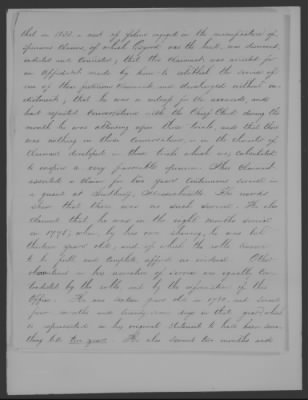 that in 1832 a nest of felons engaged in the manufacture of
spurious claims, of which was the head, was discovered,
indicted and convicted; that the Claimant was arrested for
an Affidavit made by him to establish the service of
one of these fictitious Claimants and discharged without an
indictment; that he was a witness for the accused, and
had repeated conversations with the Chief Clerk during the
month he was attending upon these trials, and that there
was nothing in those Conversations, or in the character of
Claimant developed in those trials which was calculated
to confirm a very favorable opinion. This Claimant
asserted a Claim for two years Continuous service in
a guard at Massachusetts. The records
show that there was no such service. He also
claimed that he was in the eight months service
in 1775, when, by his own showing, he was but
thirteen years old, and of which the rolls known
to be full and complete afford no evidence. Other
in his narrative of service are equally con-
tradicted by the rolls and by the information of this
Office. He was sixteen years old in 1780, and served
four months and twenty-seven days in that year, what
is represented in his original statement to have been some-
thing like two years. He also served two months and